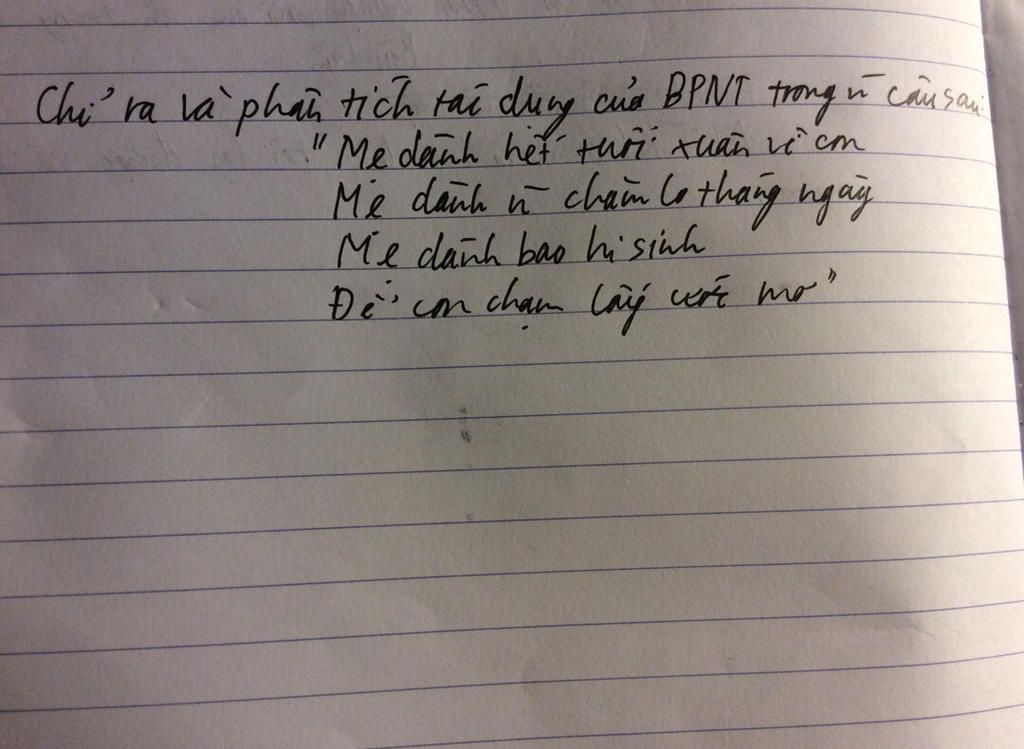 Chỉ ra và phân tích tác dụng của BPNT trong n̄ câu sau:
"Mẹ dành hết tuổi xuân vì con
Mẹ dành n̄ chăm lo tháng ngày
Mẹ dành bao hi sinh
Để con chạm lấy ước mơ"